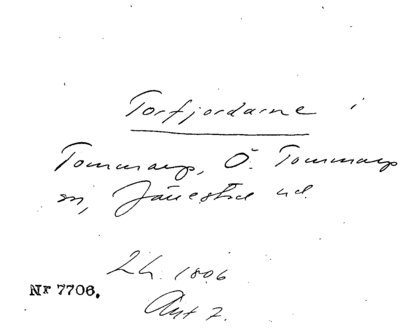 Torfjordarne i
Tommarp, Ö. Tommarp
sn, Järrestad hd.
Lh. 1806
Nr 7706.
Akt 7.